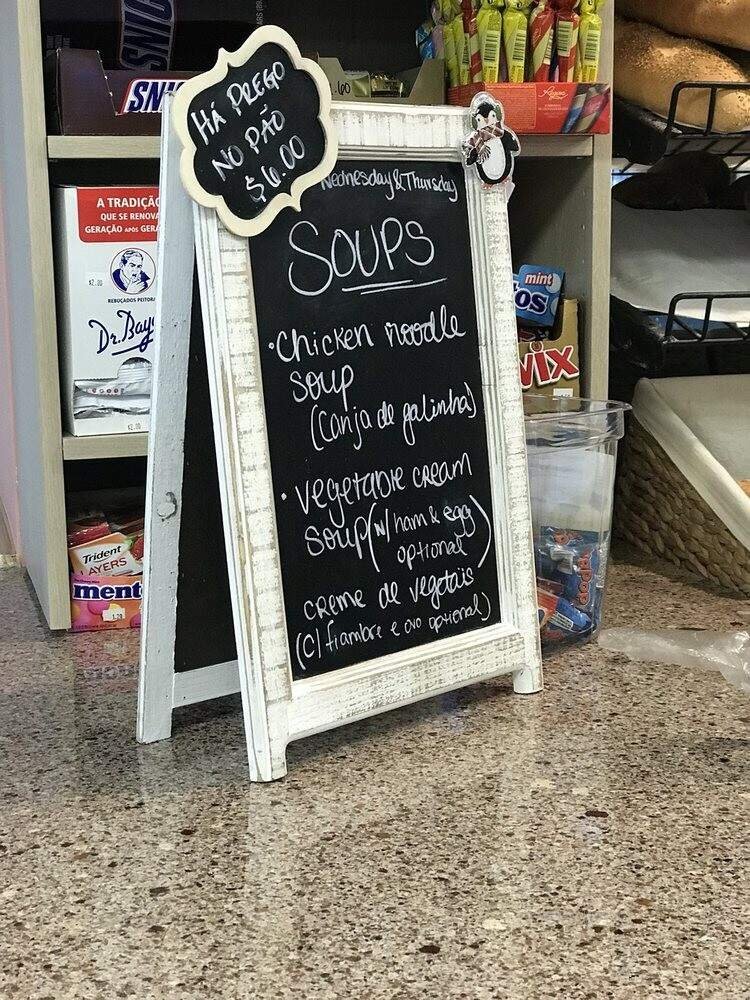 SNIC
SN
.60
HÁ PREGO
NO PÃO
$6.00
Wednesday & Thursday
SOUPS
• Chicken noodle
soup
(Canja de galinha)
• Vegetable cream
soup (w/ ham & egg
optional)
creme de vegetais
(c/ fiambre e ovo opcional)
A TRADIÇÃ
QUE SE RENOVA
GERAÇÃO APÓS GERA
$2.00
REBUÇADOS PEITORA
Dr. Baya
$2.00
Trident
LAYERS
ment
1.50
mint
os
WIX